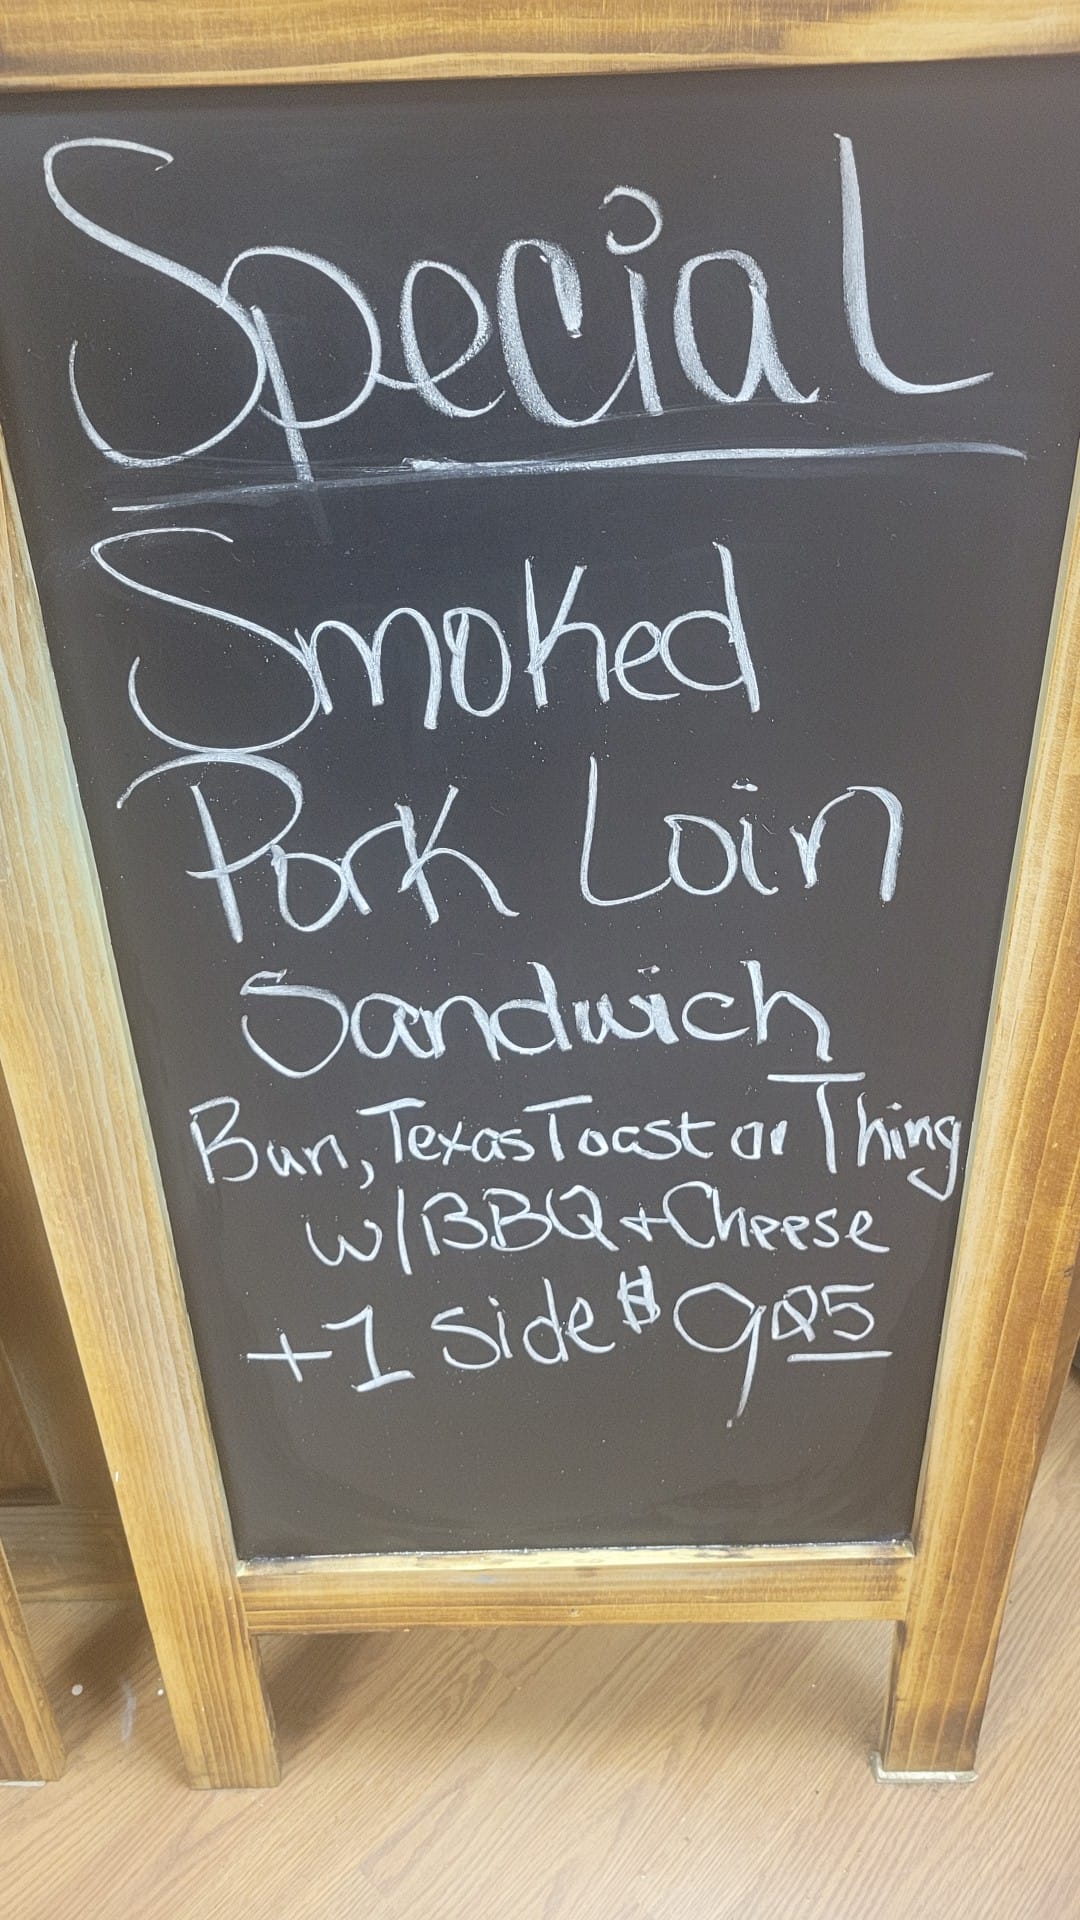 Special
Smoked
Pork Loin
Sandwich
Bun, Texas Toast or Thing
w/BBQ + Cheese
+1 side $995